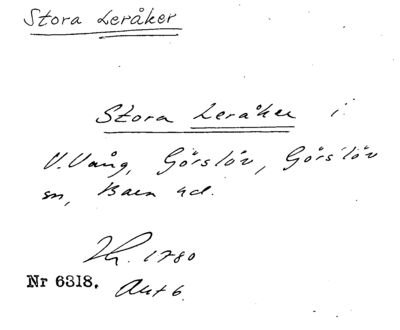 Stora Leråker
Stora Leråker i
V. Vång, Görslöv, Görslöv
sn, Bara hd.
1780
Nr 6318. Akt 6.